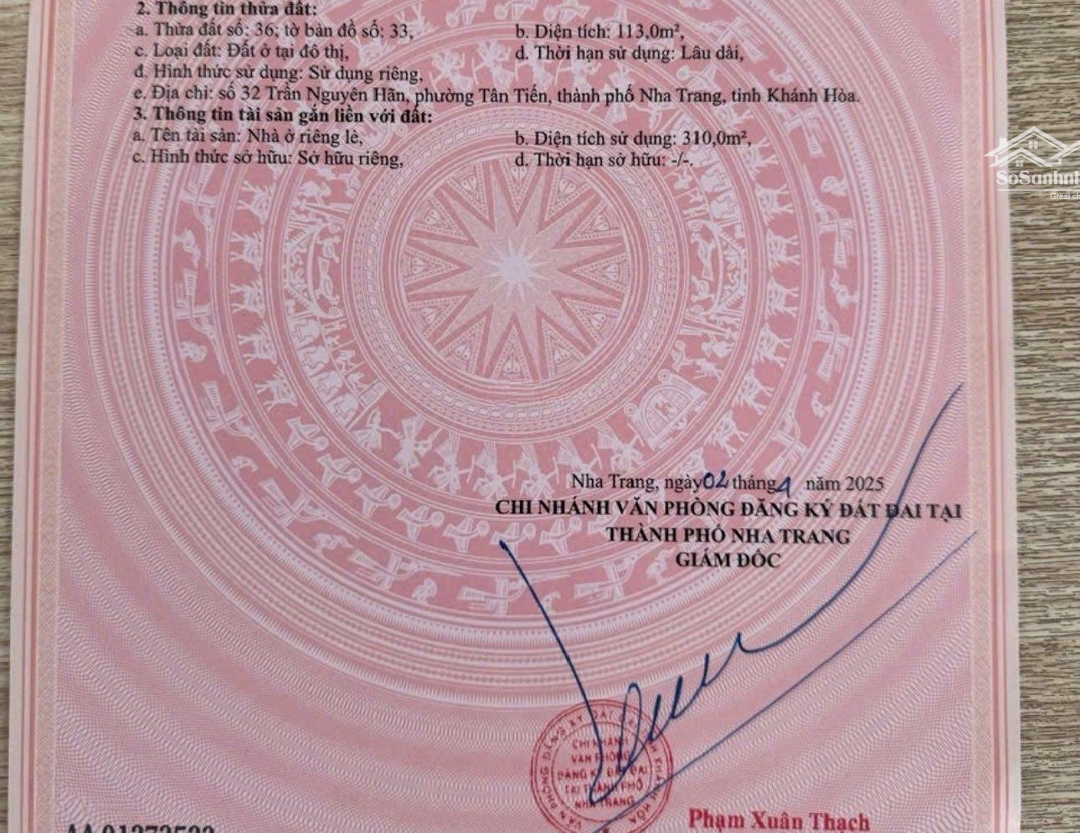 2. Thông tin thửa đất:
a. Thửa đất số: 36; tờ bản đồ số: 33,
b. Diện tích: 113,0m²,
c. Loại đất: Đất ở tại đô thị,
d. Thời hạn sử dụng: Lâu dài,
đ. Hình thức sử dụng: Sử dụng riêng,
e. Địa chỉ: số 32 Trần Nguyên Hãn, phường Tân Tiến, thành phố Nha Trang, tỉnh Khánh Hòa.
3. Thông tin tài sản gắn liền với đất:
a. Tên tài sản: Nhà ở riêng lẻ,
b. Diện tích sử dụng: 310,0m²,
c. Hình thức sở hữu: Sở hữu riêng,
d. Thời hạn sở hữu: -/-.
SoSanhnh
Great ch
Nha Trang, ngày 02 tháng 4 năm 2025
CHI NHÁNH VĂN PHÒNG ĐĂNG KÝ ĐẤT ĐAI TẠI
THÀNH PHỐ NHA TRANG
GIÁM ĐỐC
VĂN PHÒNG ĐĂNG KÝ ĐẤT ĐAI TỈNH KHÁNH HÒA
CHI NHÁNH
VĂN PHÒNG
ĐĂNG KÝ ĐẤT ĐAI
TẠI THÀNH PHỐ
NHA TRANG
Phạm Xuân Thạch